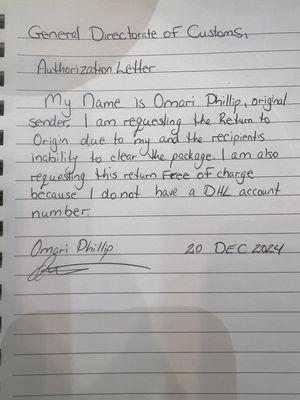 General Directorate of Customs,
Authorization Letter
My Name is Omari Phillip, original
sender. I am requesting the Return to
Origin due to my and the recipients
inability to clear the package. I am also
requesting this return Free of charge
because I do not have a DHL account
number.
Omari Phillip 20 DEC 2024